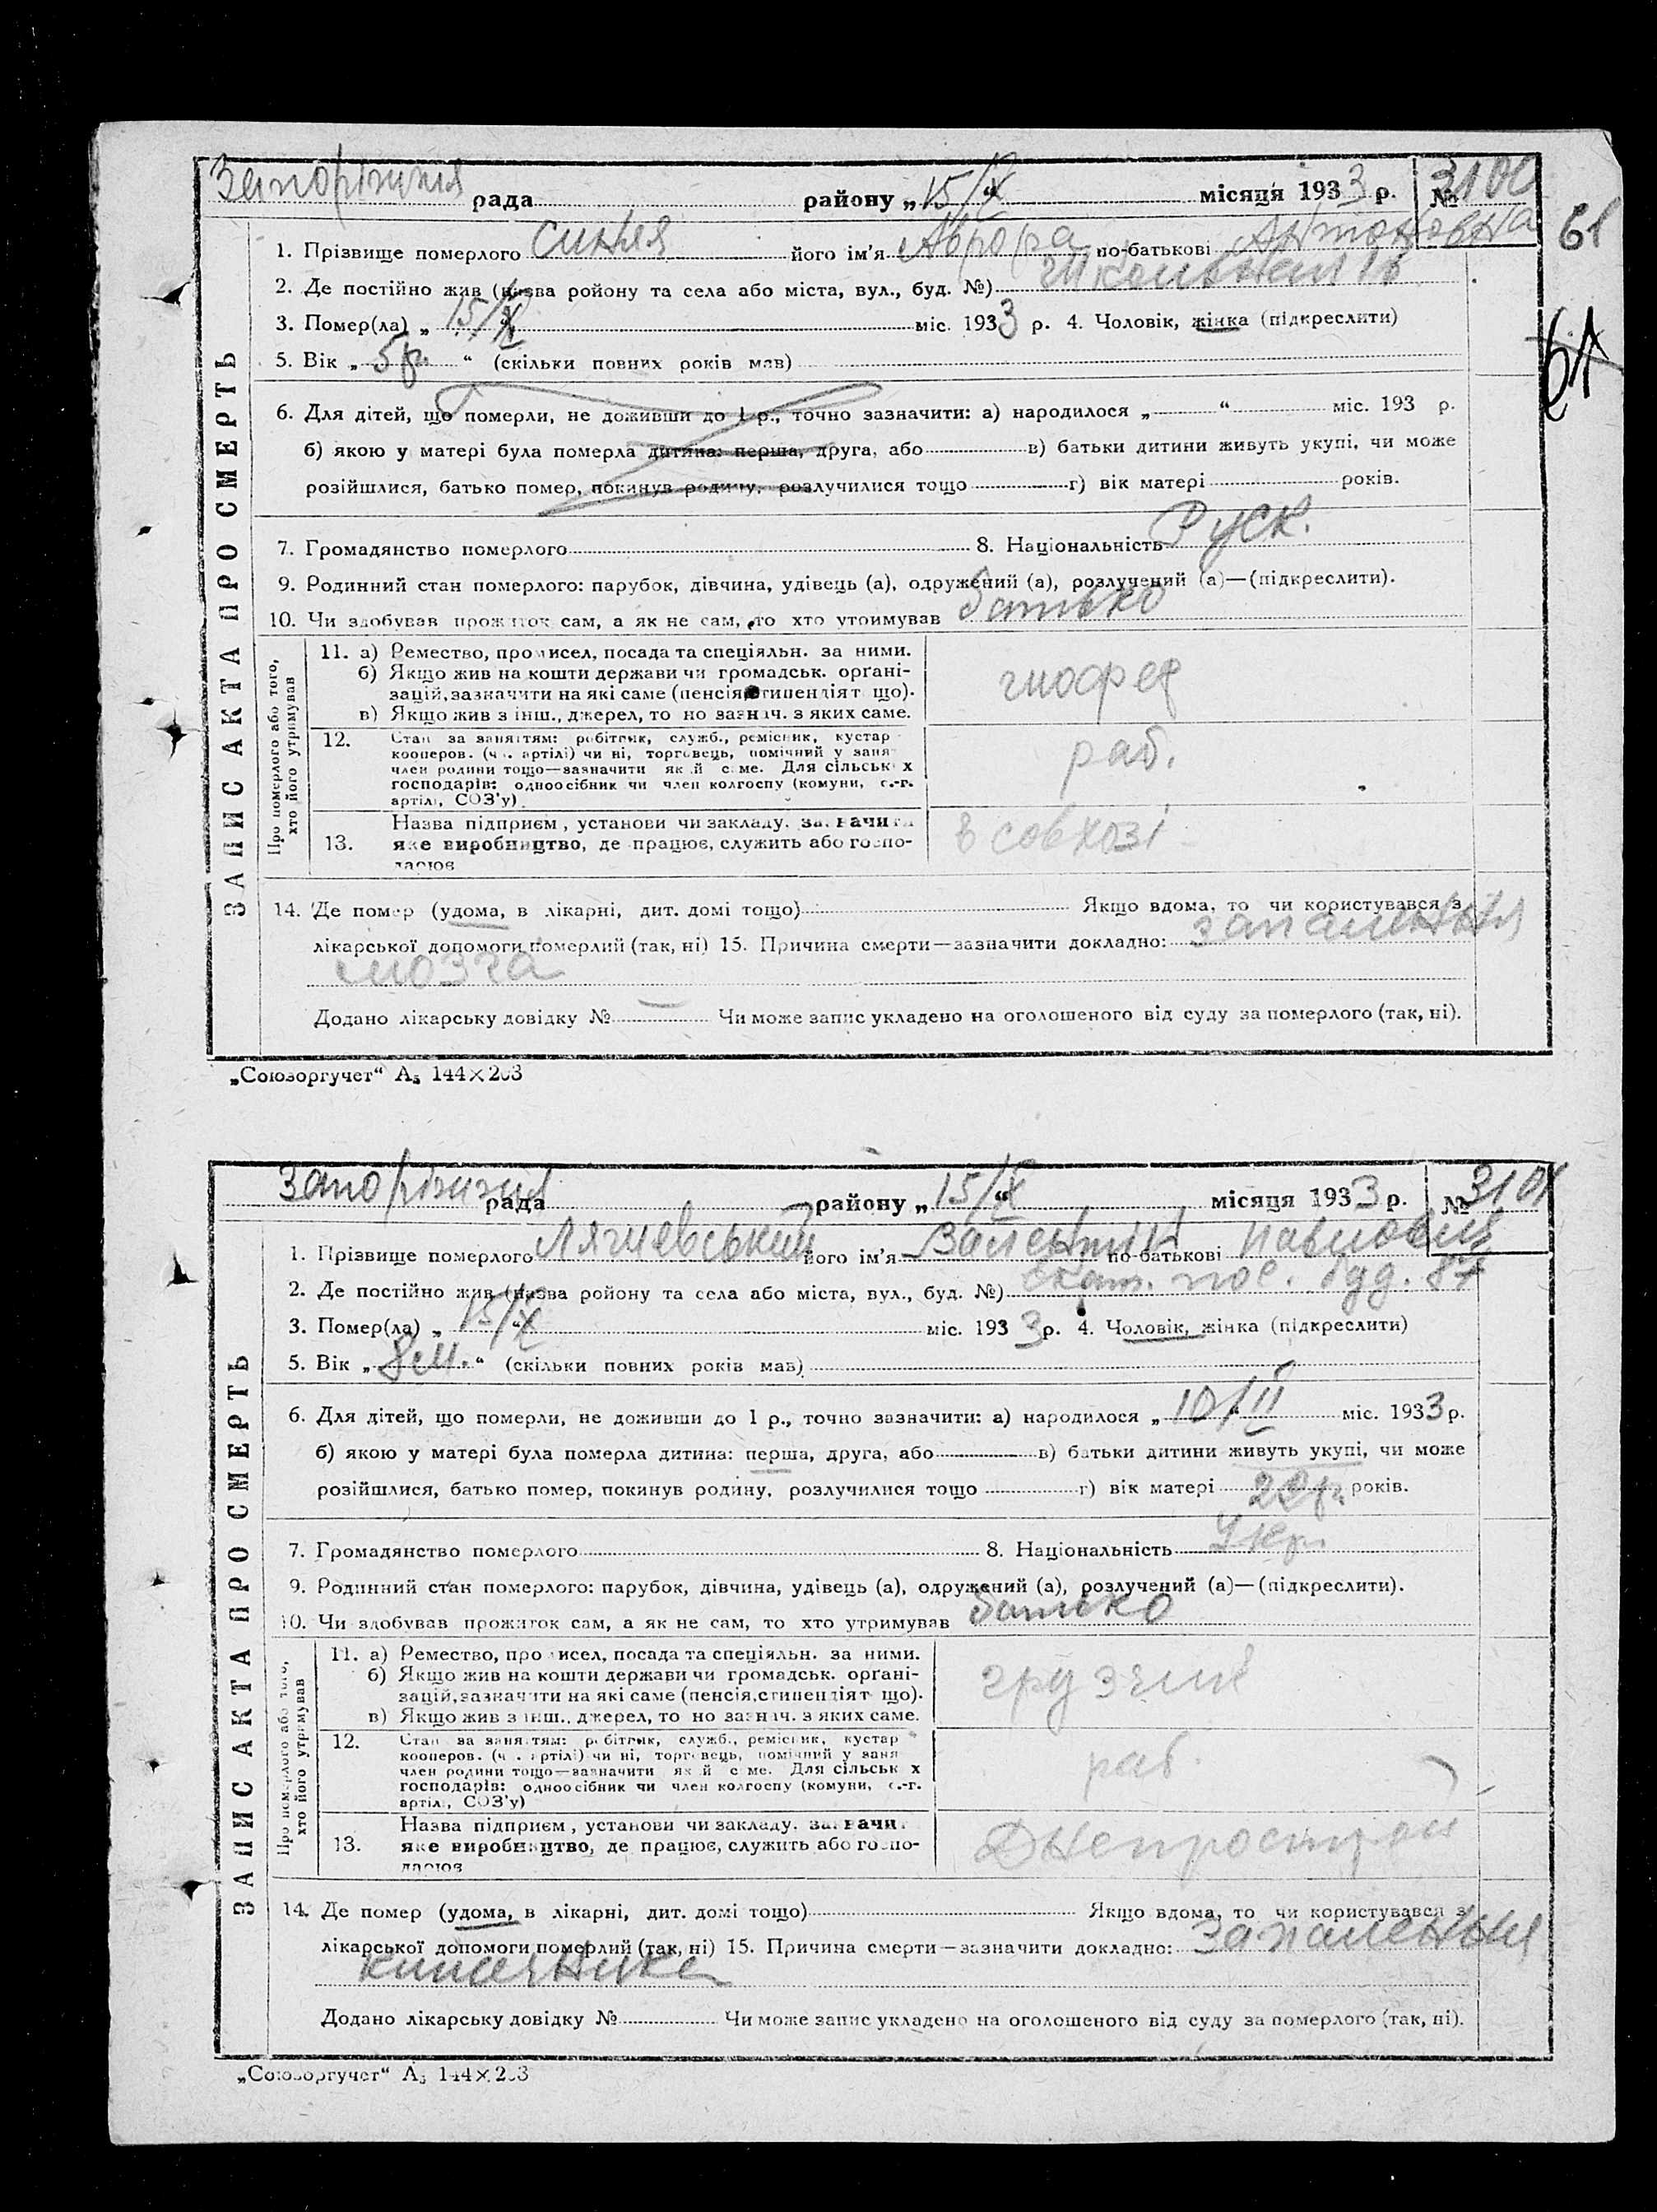 Запоріжжя рада району „15/X“ місяця 1933 р. № 3100
61
1. Прізвище померлого Синяя його ім'я Аврора по-батькові Антоновна
2. Де постійно жив (назва ройону та села або міста, вул., буд. №)
3. Помер(ла) „15/X“ міс. 1933 р. 4. Чоловік, жінка (підкреслити)
5. Вік „5 р.“ (скільки повних років мав)
61
6. Для дітей, що померли, не доживши до 1 р., точно зазначити: а) народилося „ “ міс. 193 р.
б) якою у матері була померла дитина: перша, друга, або в) батьки дитини живуть укупі, чи може
розійшлися, батько помер, покинув родину, розлучилися тощо г) вік матері років.
7. Громадянство померлого 8. Національність Руск.
9. Родинний стан померлого: парубок, дівчина, удівець (а), одружений (а), розлучений (а)—(підкреслити).
10. Чи здобував прожиток сам, а як не сам, то хто утримував батько
ЗАПИС АКТА ПРО СМЕРТЬ
Про померлого або того, хто його утримував
11. а) Ремество, промисел, посада та спеціяльн. за ними.
б) Якщо жив на кошти держави чи громадськ. орґані-
зацій, зазначити на які саме (пенсія, стипендія т що).
в) Якщо жив з інш., джерел, то но зазнач. з яких саме.
шофер
12. Стан за заняттям: робітник, служб., ремісник, кустар
кооперов. (ч . артілі) чи ні, торговець, помічний у заня
член родини тощо—зазначити як й с ме. Для сільськ х
господарів: одноосібник чи член колгоспу (комуни, с.-г.
артілі, СОЗ'у)
раб.
13. Назва підприєм, установи чи закладу. зазначити
яке виробництво, де працює, служить або госпо-
дарює
в совхозі
14. Де помер (удома, в лікарні, дит. домі тощо) Якщо вдома, то чи користувався з
лікарської допомоги померлий (так, ні) 15. Причина смерти—зазначити докладно: запалення
мозга
Додано лікарську довідку № — Чи може запис укладено на оголошеного від суду за померлого (так, ні).
„Союзоргучет“ А₅ 144×203
Запоріжжя рада району „15/X“ місяця 1933 р. № 3101
1. Прізвище померлого Лягчевський його ім'я Валентин по-батькові Павлович
2. Де постійно жив (назва ройону та села або міста, вул., буд. №) пос. буд. 87
3. Помер(ла) „15/X“ міс. 1933 р. 4. Чоловік, жінка (підкреслити)
5. Вік „8 м.“ (скільки повних років мав)
6. Для дітей, що померли, не доживши до 1 р., точно зазначити: а) народилося „10/II міс. 1933 р.
б) якою у матері була померла дитина: перша, друга, або в) батьки дитини живуть укупі, чи може
розійшлися, батько помер, покинув родину, розлучилися тощо г) вік матері років.
7. Громадянство померлого 8. Національність Укр.
9. Родинний стан померлого: парубок, дівчина, удівець (а), одружений (а), розлучений (а)—(підкреслити).
10. Чи здобував прожиток сам, а як не сам, то хто утримував батько
ЗАПИС АКТА ПРО СМЕРТЬ
Про померлого або того, хто його утримував
11. а) Ремество, про исел, посада та спеціяльн. за ними.
б) Якщо жив на кошти держави чи громадськ. орґані-
зацій, зазначити на які саме (пенсія, стипендія т що).
в) Якщо жив з інш., джерел, то но зазнач. з яких саме.
грузчик
12. Стан за заняттям: робітник, служб., ремісник, кустар
кооперов. (ч . артілі) чи ні, торговець, помічний у заня
член родини тощо—зазначити як й с ме. Для сільськ х
господарів: одноосібник чи член колгоспу (комуни, с.-г.
артіл , СОЗ'у)
раб.
13. Назва підприєм, установи чи закладу. зазначи
яке виробництво, де працює, служить або госпо-
дарює
Днепрострой
14. Де помер (удома, в лікарні, дит. домі тощо) Якщо вдома, то чи користувався з
лікарської допомоги померлий (так, ні) 15. Причина смерти—зазначити докладно: запалення
кишечника
Додано лікарську довідку № Чи може запис укладено на оголошеного від суду за померлого (так, ні).
„Союзоргучет“ А₅ 144×203